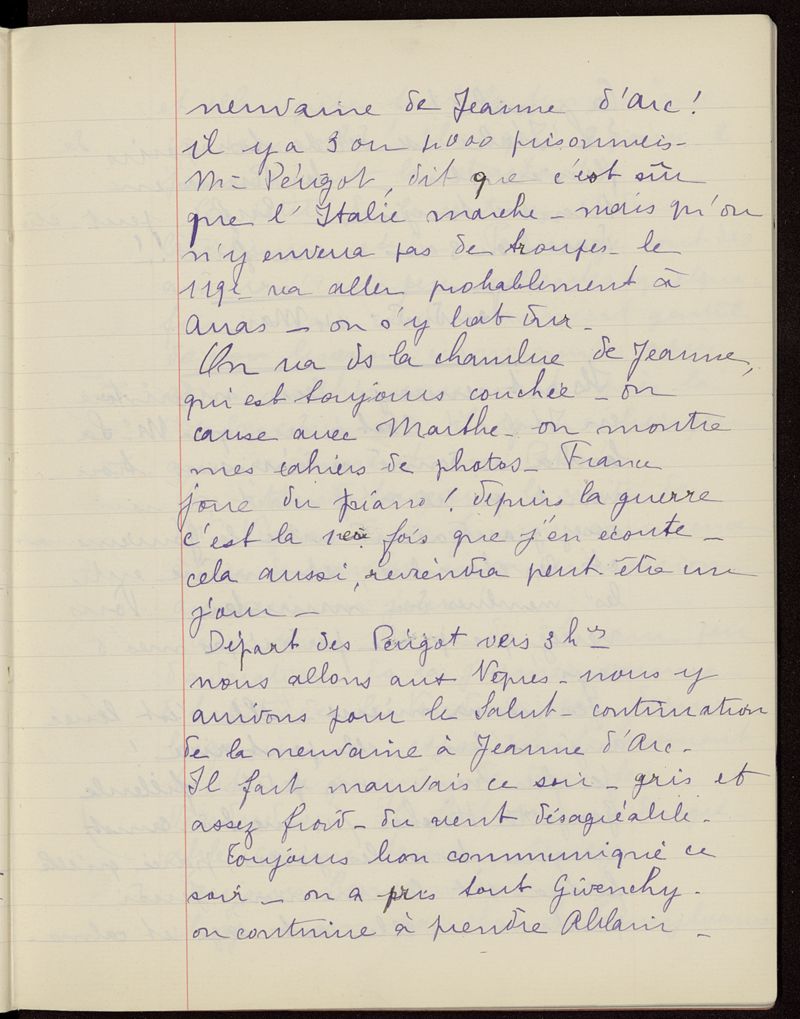 neuvaine de Jeanne d'Arc !
il y a 3 ou 4000 prisonniers -
Mr Périgot, dit que c'est sûr
que l'Italie marche - mais qu'on
n'y enverra pas de troupes - le
119e va aller probablement à
Arras - on s'y bat dur -
On va ds la chambre de Jeanne,
qui est toujours couchée - on
cause avec Marthe - on montre
mes cahiers de photos - France
joue du piano ! depuis la guerre
c'est la 1ère fois que j'en écoute -
cela aussi, reviendra peut-être un
jour -
Départ des Périgot vers 3 hres
nous allons aux Vêpres - nous y
arrivons pour le Salut - continuation
de la neuvaine à Jeanne d'Arc -
Il fait mauvais ce soir - gris et
assez froid - du vent désagréable -
Toujours bon communiqué ce
soir - on a pris tout Givenchy -
on continue à prendre Ablain -